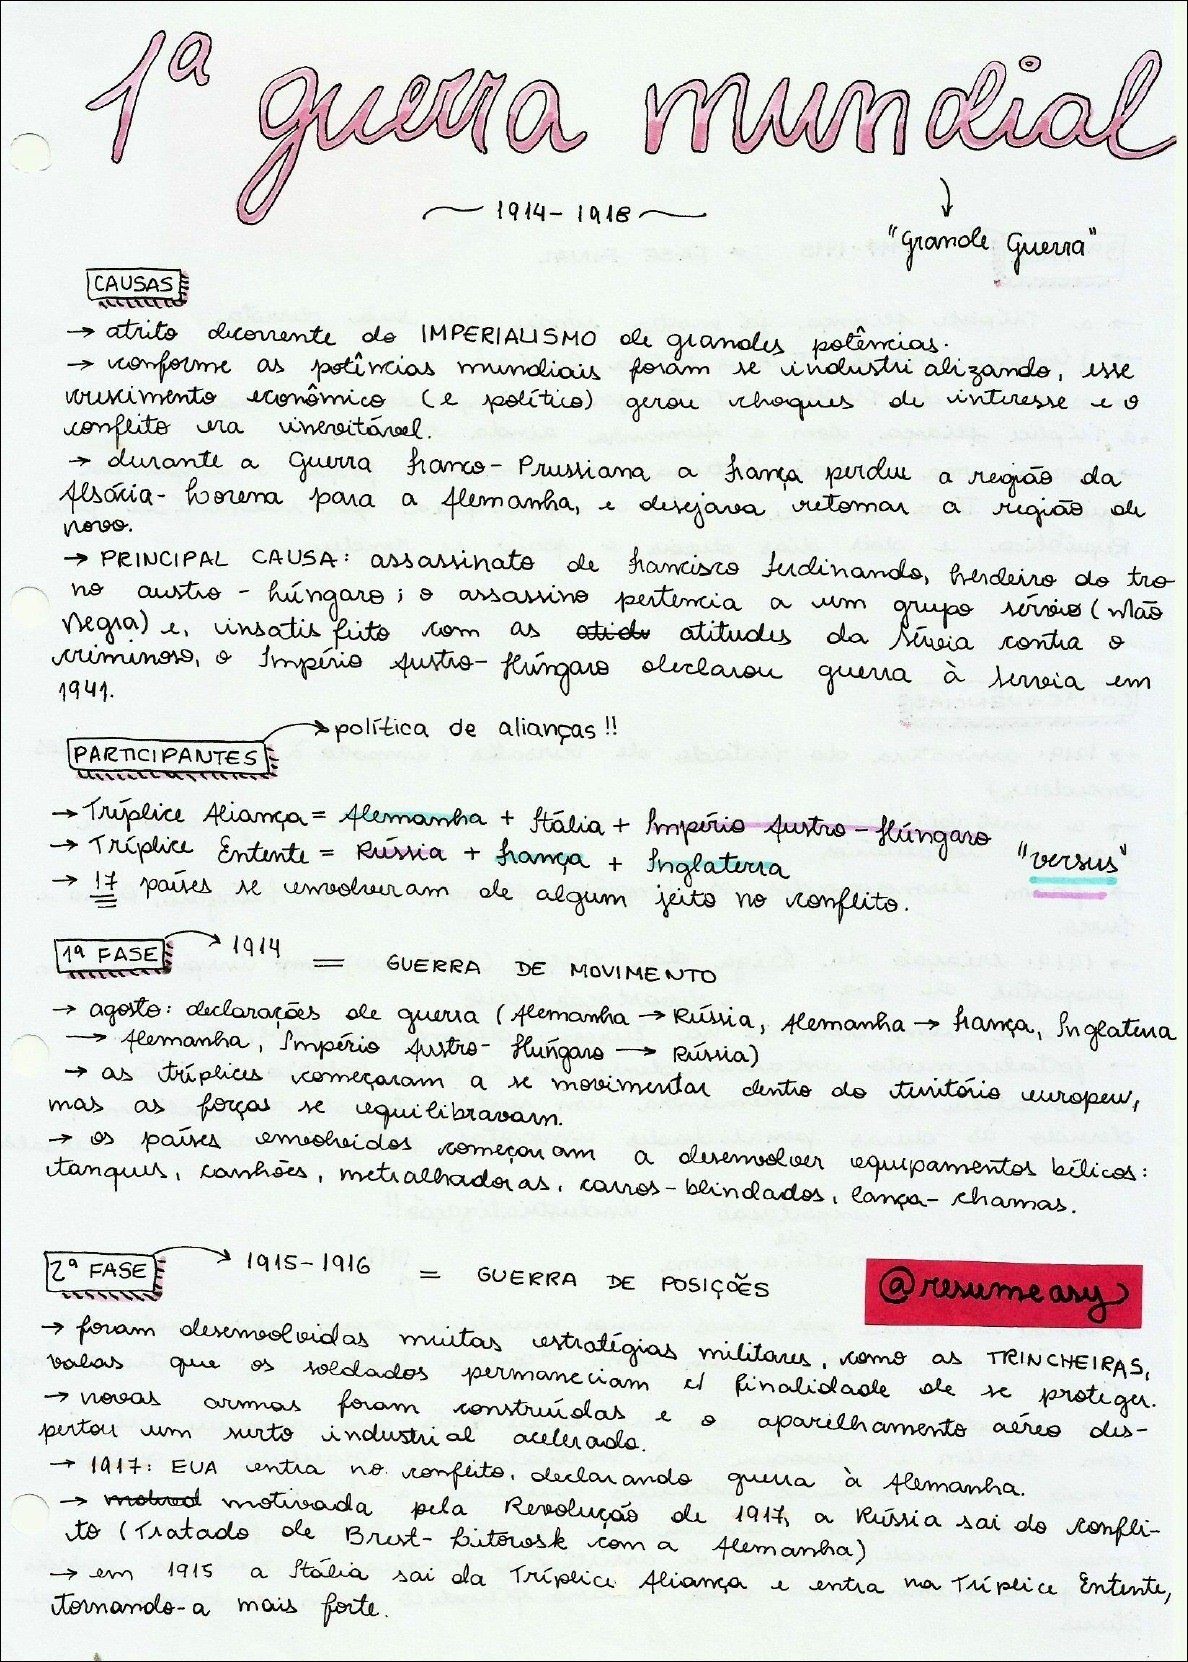 1ª guerra mundial
1914-1918
"Grande Guerra"
CAUSAS
→ atrito decorrente do IMPERIALISMO de grandes potências.
→ conforme as potências mundiais foram se industrializando, esse
crescimento econômico (e político) gerou choques de interesse e o
conflito era inevitável.
→ durante a Guerra Franco-Prussiana a França perdeu a região da
Alsácia-Lorena para a Alemanha, e desejava retomar a região de
novo.
→ PRINCIPAL CAUSA: assassinato de Francisco Ferdinando, herdeiro do tro-
no austro-húngaro; o assassino pertencia a um grupo sérvio (Mão
Negra) e, insatisfeito com as atitudes da Sérvia contra o
criminoso, o Império Austro-Húngaro declarou guerra à Servia em
1941.
PARTICIPANTES → política de alianças!!
→ Tríplice Aliança = Alemanha + Itália + Império Austro-Húngaro
→ Tríplice Entente = Rússia + França + Inglaterra
"versus"
→ 17 países se envolveram de algum jeito no conflito.
1ª FASE → 1914 = GUERRA DE MOVIMENTO
→ agosto: declarações de guerra (Alemanha → Rússia, Alemanha → França, Inglaterra
→ Alemanha, Império Austro-Húngaro → Rússia)
→ as tríplices começaram a se movimentar dentro do território europeu,
mas as forças se equilibravam.
→ os países envolvidos começaram a desenvolver equipamentos bélicos:
tanques, canhões, metralhadoras, carros-blindados, lança-chamas.
2ª FASE → 1915-1916 = GUERRA DE POSIÇÕES
@resumeasy
→ foram desenvolvidas muitas estratégias militares, como as TRINCHEIRAS,
valas que os soldados permaneciam c/ finalidade de se proteger.
→ novas armas foram construídas e o aparelhamento aéreo des-
pertou um surto industrial acelerado.
→ 1917: EUA entra no conflito, declarando guerra à Alemanha.
→ motivada pela Revolução de 1917, a Rússia sai do confli-
to (Tratado de Brest-Litovosk com a Alemanha)
→ em 1915 a Itália sai da Tríplice Aliança e entra na Tríplice Entente,
tornando-a mais forte.